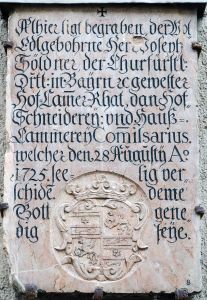 Alhier ligt begraben der Wol
Edlgebohrne Herr Joseph
Göldner der Churfürst
Drtl: in Bayrn &c gewester
Hof Camer Rhat, dan Hof
Schneiderey: und Hauß=
Camineren Comißarius,
welcher den .28 Augusty Aº
1725. see= lig ver=
schide. deme
Gott gene
dig seye.
8